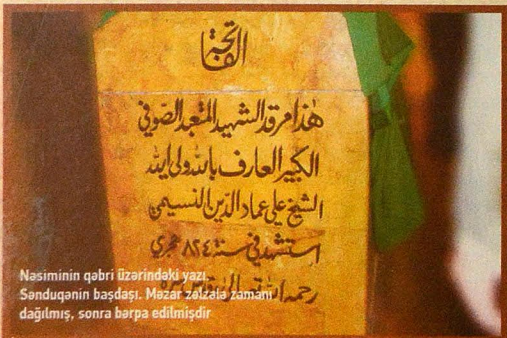 الفاتحة
هذا مرقد الشهيد المتعبد الصوفي
الكبير العارف بالله ولي الله
الشيخ علي عماد الدين النسيمي
استشهد في سنة ٨٢٤ هجري
رحمه الله تعالى
Nəsiminin qəbri üzərindəki yazı.
Sənduqənin başdaşı. Məzar zəlzələ zamanı
dağılmış, sonra bərpa edilmişdir